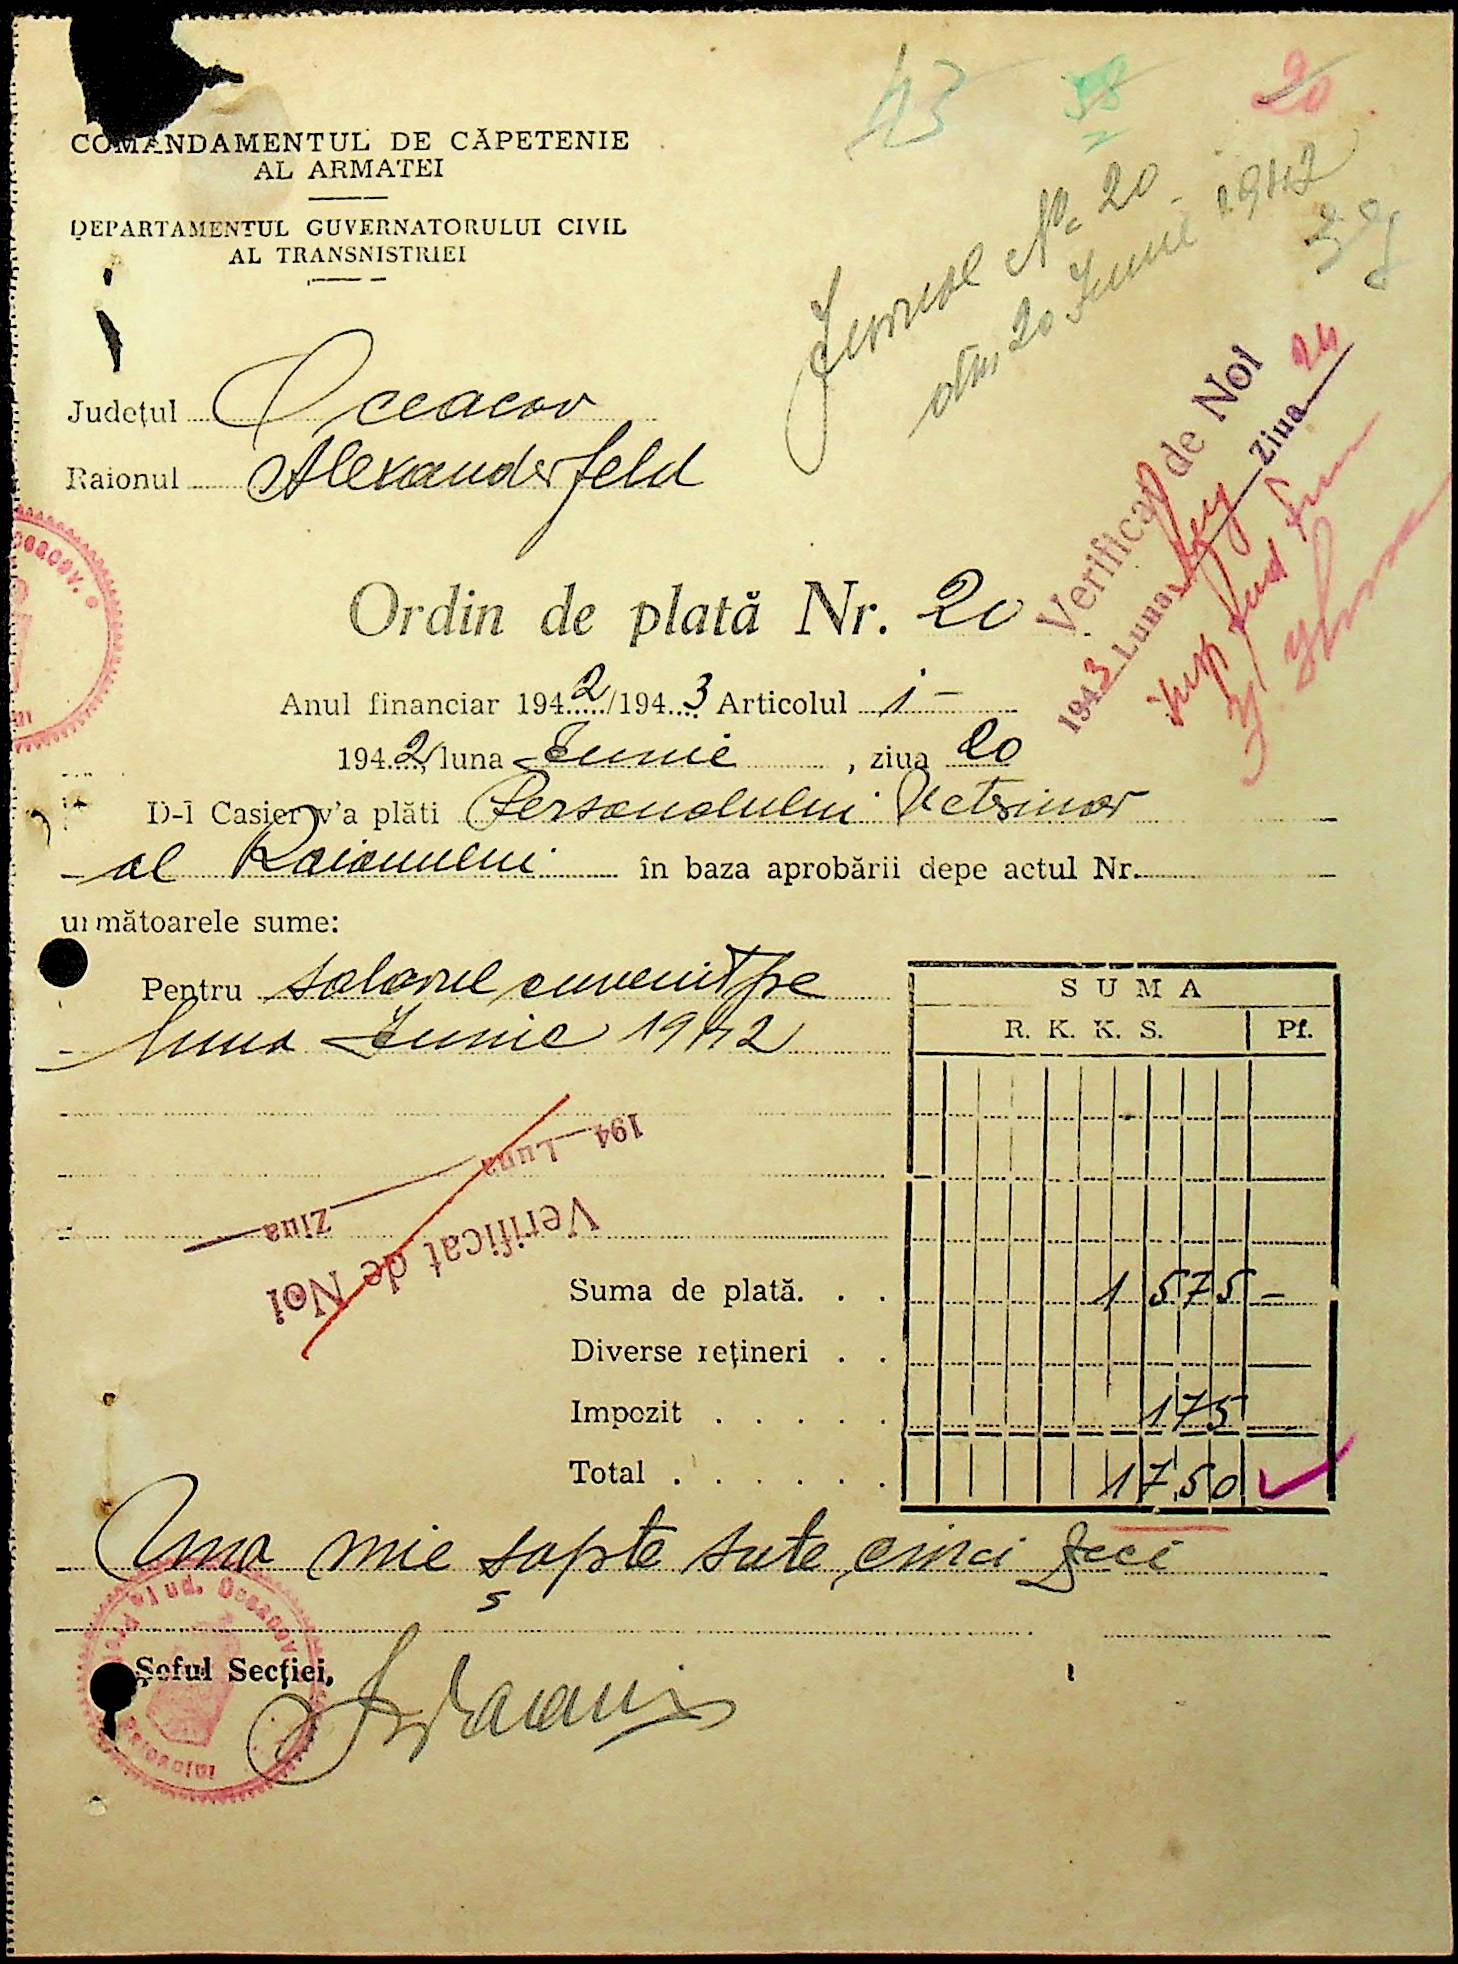 43 58 20
COMANDAMENTUL DE CĂPETENIE
AL ARMATEI
DEPARTAMENTUL GUVERNATORULUI CIVIL
AL TRANSNISTRIEI
Jurnal No. 20
din 20 Iunie 1942
39
Județul Oceacov
Raionul Alexanderfeld
Verificat de Noi
1943 Luna Ziua 24
Ordin de plată Nr. 20
Anul financiar 1942/1943 Articolul 1 —
1942, luna Iunie, ziua 20
D-l Casier v'a plăti Personalului Veterinar
al Raionului în baza aprobării depe actul Nr.
următoarele sume:
Pentru salariul cuvenit pe
luna Iunie 1942
SUMA
R. K. K. S. Pf.
194 Luna Ziua
Verificat de Noi
Suma de plată. . . 1575 —
Diverse rețineri . .
Impozit . . . . . 175
Total . . . . . . 1750
Una mie șapte sute cinci zeci
Șeful Secției,